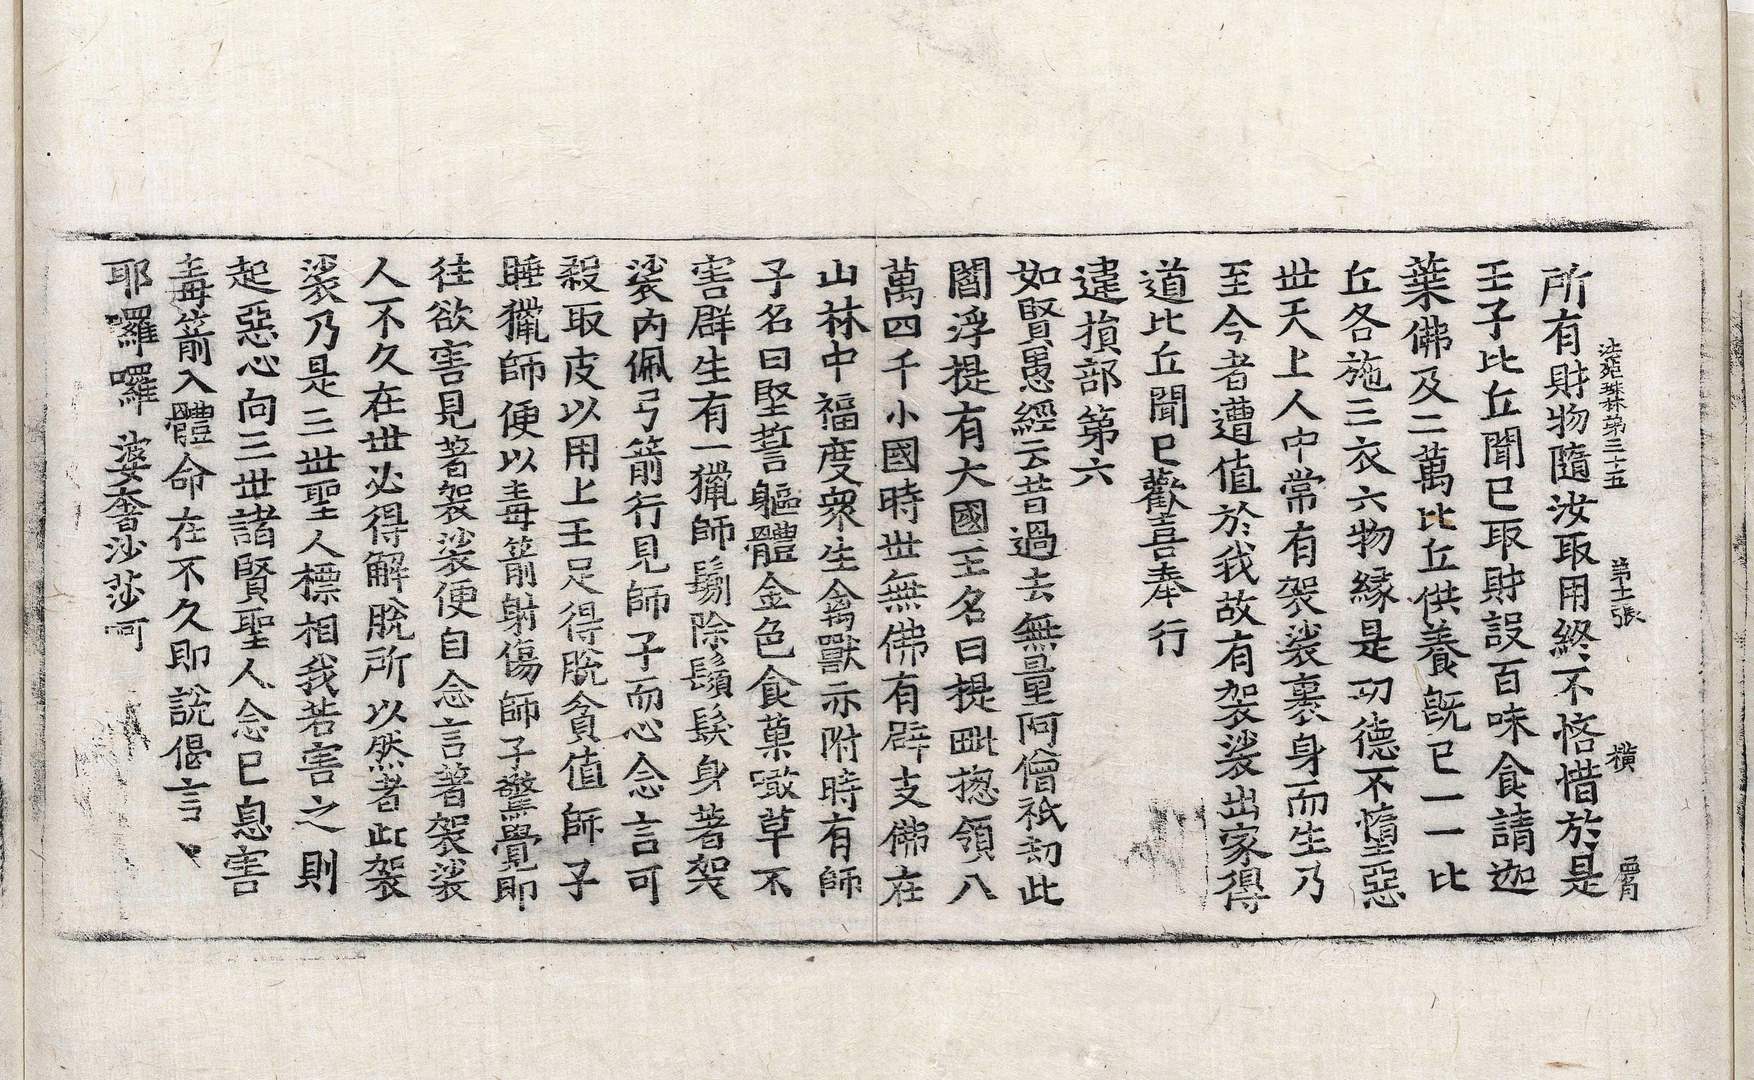 法苑珠林第三十五 第十一張 橫
所有財物隨汝取用終不悋惜於是
王子比丘聞已取財設百味食請迦
葉佛及二萬比丘供養既已一一比
丘各施三衣六物緣是功德不墮惡
世天上人中常有袈裟裹身而生乃
至今者遭值於我故有袈裟出家得
道比丘聞已歡喜奉行
違損部第六
如賢愚經云昔過去無量阿僧祇劫此
閻浮提有大國王名曰提毗揔領八
萬四千小國時世無佛有辟支佛在
山林中福度衆生禽獸亦附時有師
子名曰堅誓軀體金色食菓噉草不
害群生有一獵師鬀除鬚髮身著袈
裟內佩弓箭行見師子而心念言可
殺取皮以用上王足得脫貧值師子
睡獵師便以毒箭射傷師子驚覺即
往欲害見著袈裟便自念言著袈裟
人不久在世必得解脫所以然者此袈
裟乃是三世聖人標相我若害之則
起惡心向三世諸賢聖人念已息害
毒箭入體命在不久即說偈言
耶囉囉 婆奢沙莎呵